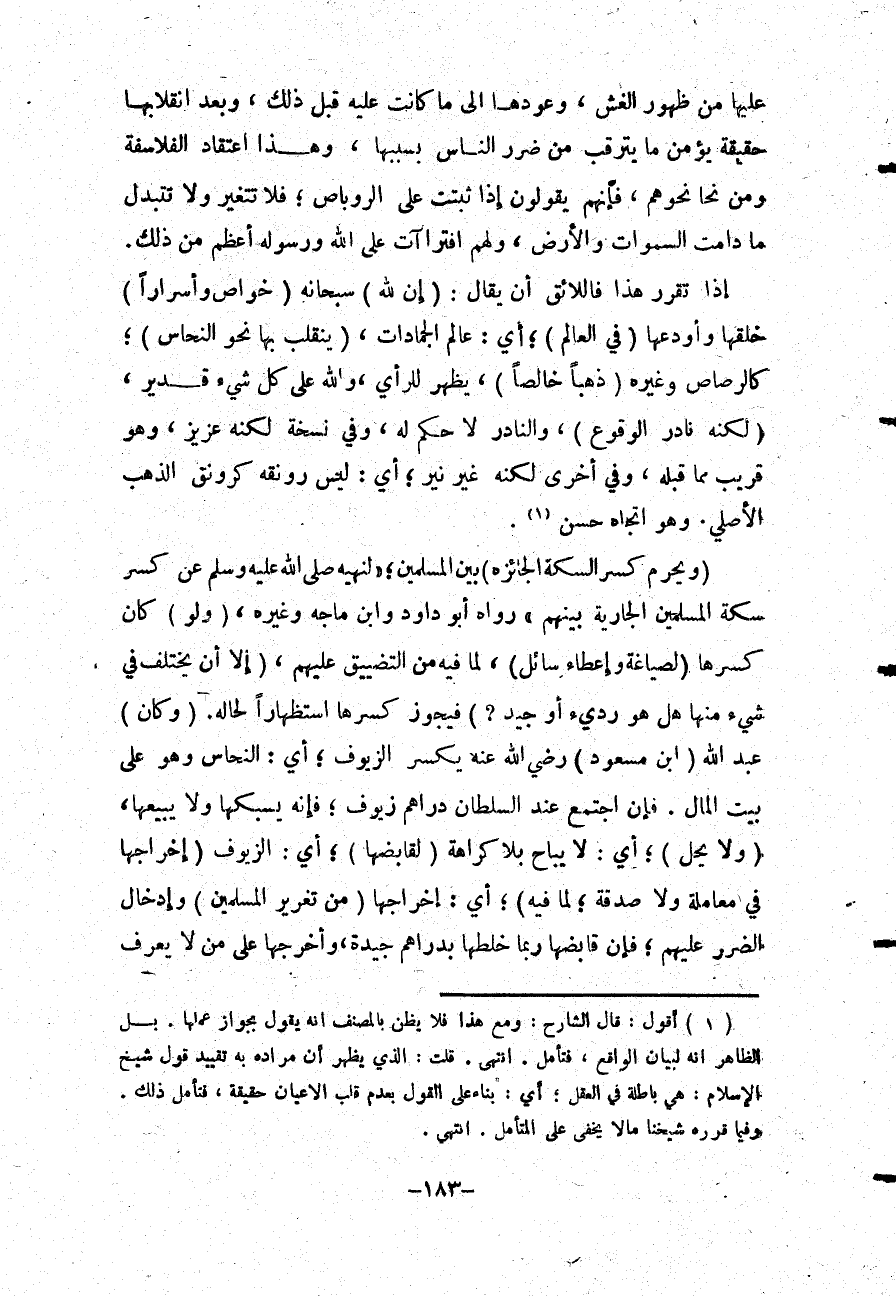 عليها من ظهور الغش ، وعودهـا الى ما كانت عليه قبل ذلك ، وبعد انقلابهـا
حقيقة يؤمن ما يترقب من ضرر النـاس بسببها ، وهـــذا اعتقاد الفلاسفة
ومن نحا نحوهم ، فأنهم يقولون إذا ثبتت على الروباص ؛ فلا تتغير ولا تتبدل
ما دامت السموات والأرض ، ولهم افتراآت على الله ورسوله أعظم من ذلك.
إذا تقرر هذا فاللائق أن يقال : ( إن لله ) سبحانه ( خواص وأسراراً )
خلقها وأودعها ( في العالم ) ؛ أي : عالم الجمادات ، ( ينقلب بها نحو النحاس ) ؛
كالرصاص وغيره ( ذهباً خالصاً ) ، يظهر للرأي ، والله على كل شيء قـــدير ،
( لكنه نادر الوقوع ) ، والنادر لا حكم له ، وفي نسخة لكنه عزيز ، وهو
قريب مما قبله ، وفي أخرى لكنه غير نير ؛ أي : ليس رونقه كرونق الذهب
الأصلي . وهو اتجاه حسن (١) .
( ويحرم كسر السكة الجائزه ) بين المسلمين ؛ « لنهيه صلى الله عليه وسلم عن كسر
سكة المسلمين الجارية بينهم » رواه أبو داود وابن ماجه وغيره ، ( ولو ) كان
كسرها ( لصياغة وإعطاء سائل ) ، لما فيه من التضييق عليهم ، ( إلا أن يختلف في
شيء منها هل هو رديء أو جيد ? ) فيجوز كسرها استظهاراً لحاله . ( وكان )
عبد الله ( ابن مسعود ) رضي الله عنه يكسر الزيوف ؛ أي : النحاس وهو على
بيت المال . فإن اجتمع عند السلطان دراهم زيوف ؛ فإنه يسبكها ولا يبيعها ،
( ولا يحل ) ؛ أي : لا يباح بلا كراهة ( لقابضها ) ؛ أي : الزيوف ( إخراجها
في معاملة ولا صدقة ؛ لما فيه ) ؛ أي : إخراجها ( من تغرير المسلمين ) وإدخال
الضرر عليهم ؛ فإن قابضها ربما خلطها بدراهم جيدة ، وأخرجها على من لا يعرف
( ١ ) أقول : قال الشارح : ومع هذا فلا يظن بالمصنف انه يقول بجواز عملها . بـــل
الظاهر انه لبيان الواقع ، فتأمل . انتهى . قلت : الذي يظهر أن مراده به تقييد قول شيخ
الإسلام : هي باطلة في العقل ؛ أي : بناء على القول بعدم قلب الاعيان حقيقة ، فتأمل ذلك .
وفيما قرره شيخنا مالا يخفى على المتأمل . انتهي .
-١٨٣-